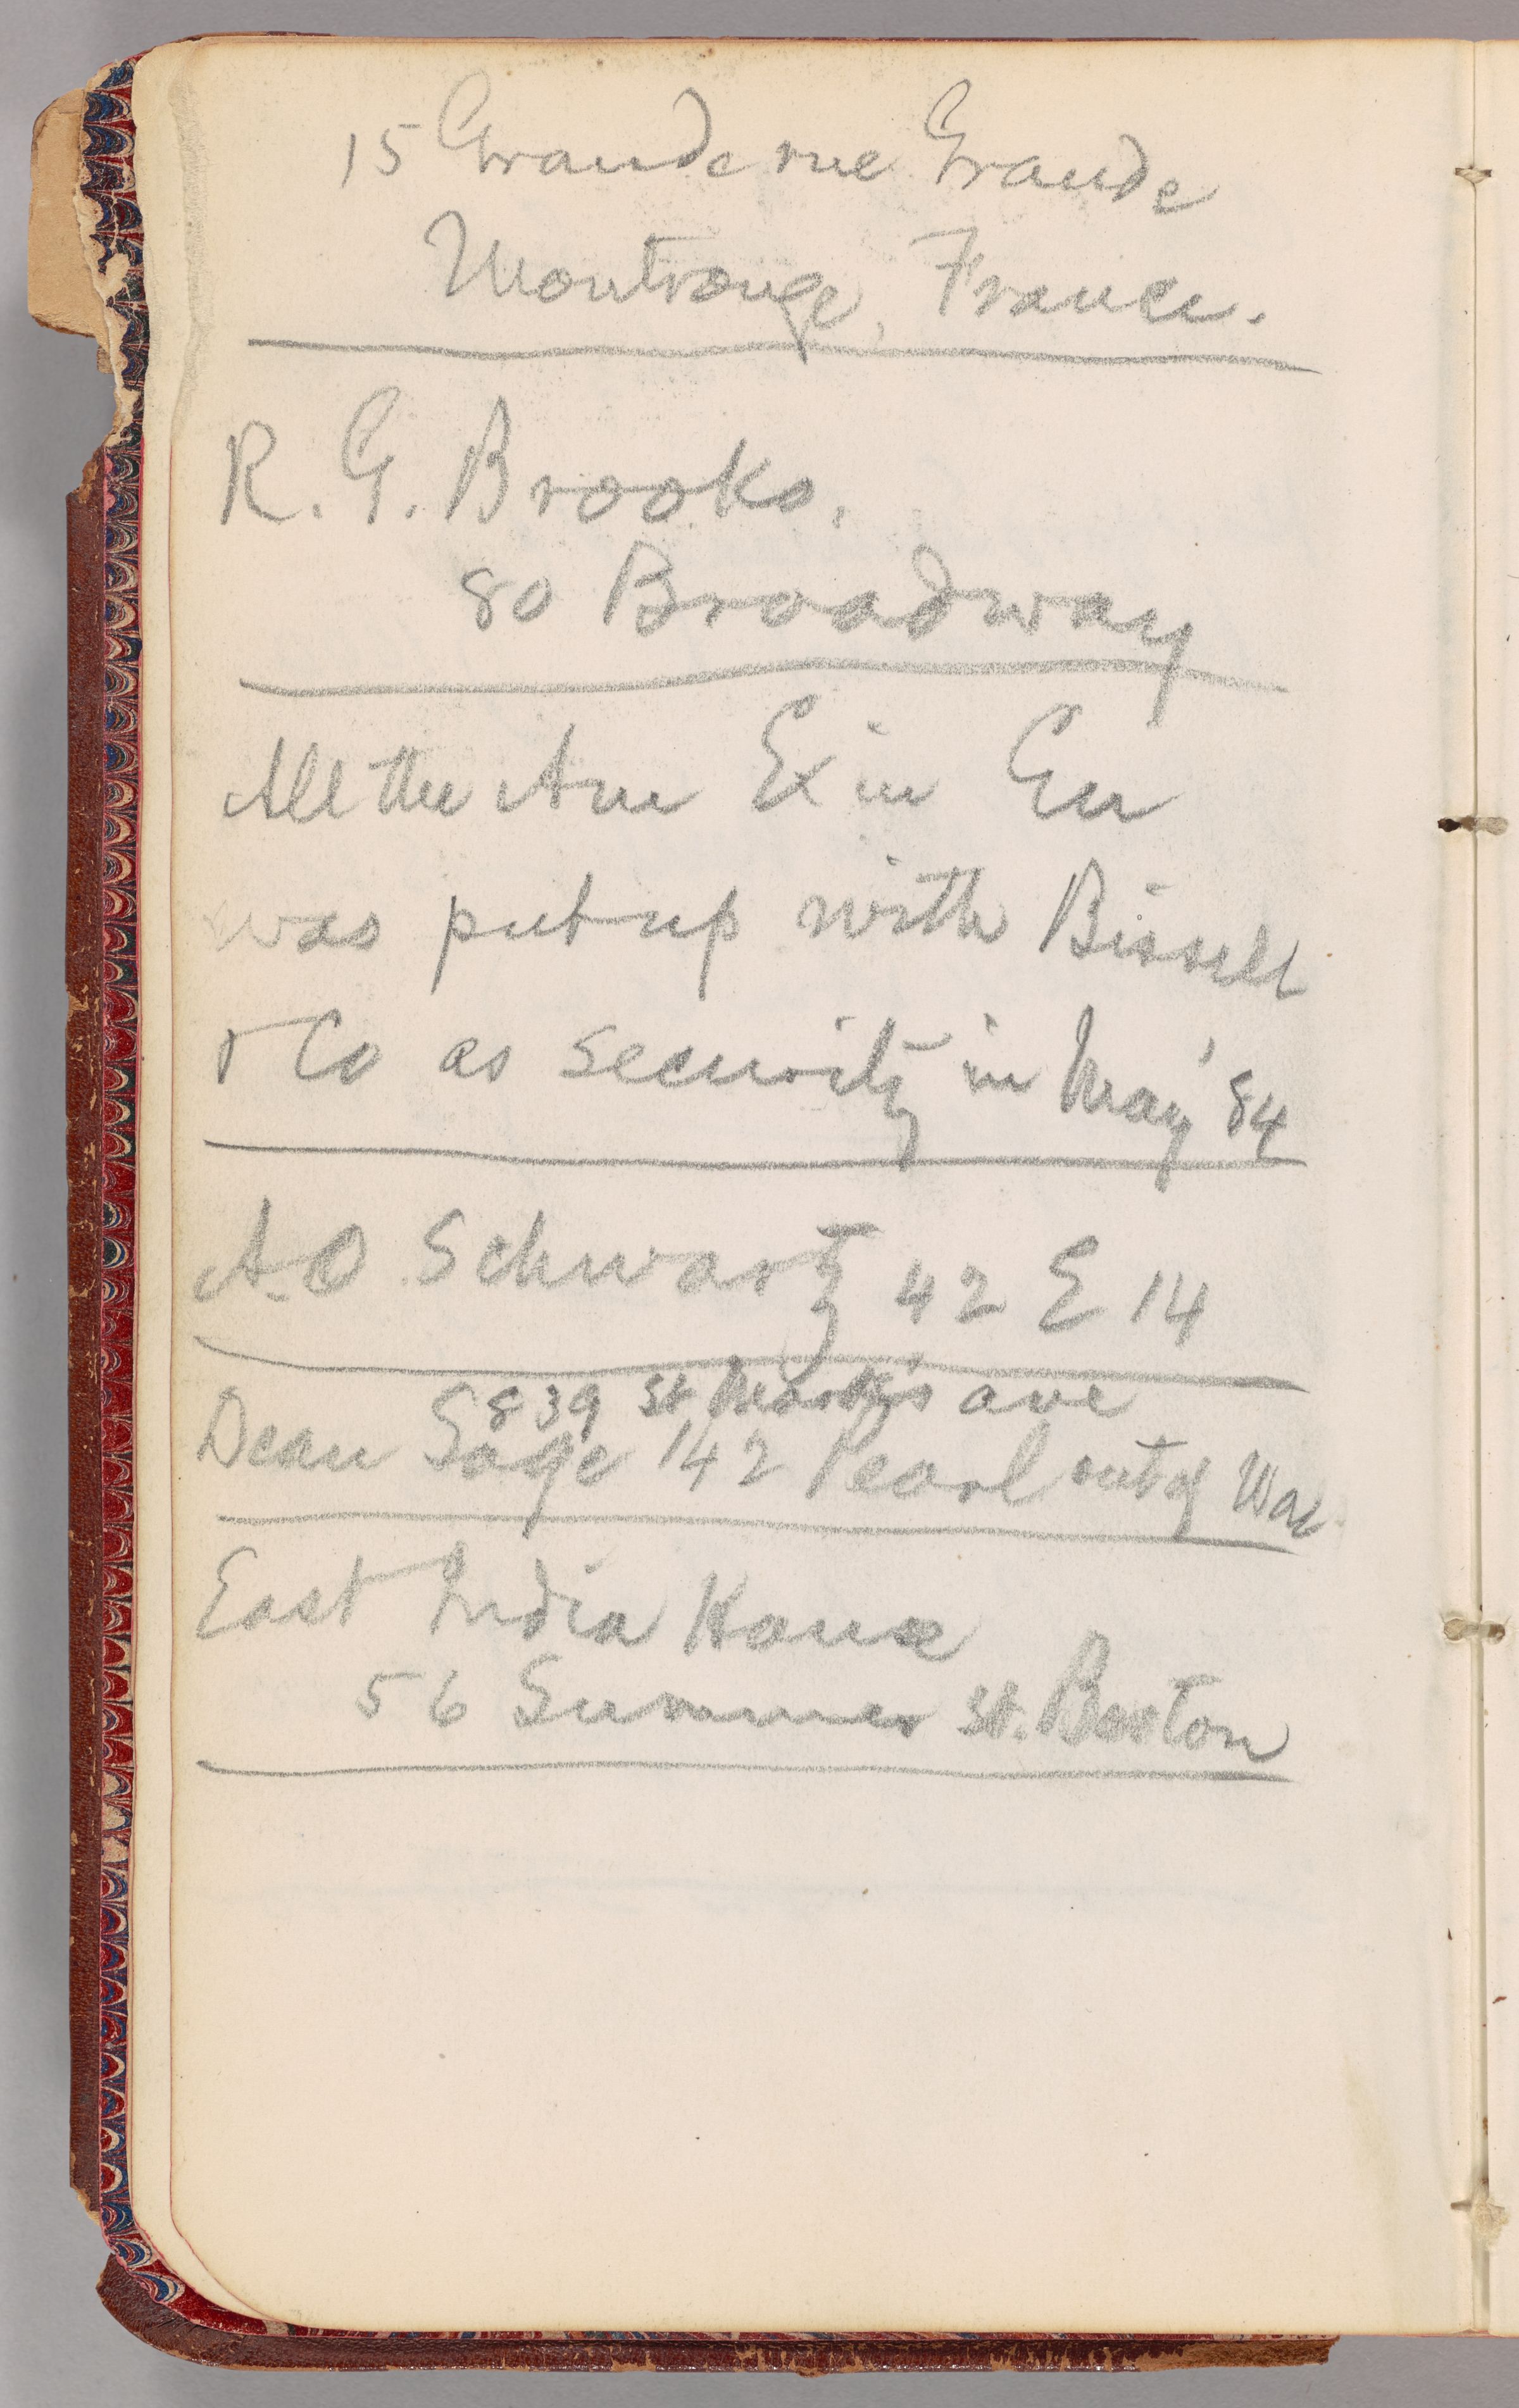 15 Grande rue Grande
Montrouge, France.
R. G. Brooks.
80 Broadway
All the Am Ex in Eu
was put up with Bissell
& Co as Security in May '84
A. O. Schwartz 42 E 14
839 St Mark's ave
Dean Sage 142 Pearl out of Wal
East India House
56 Summer St. Boston